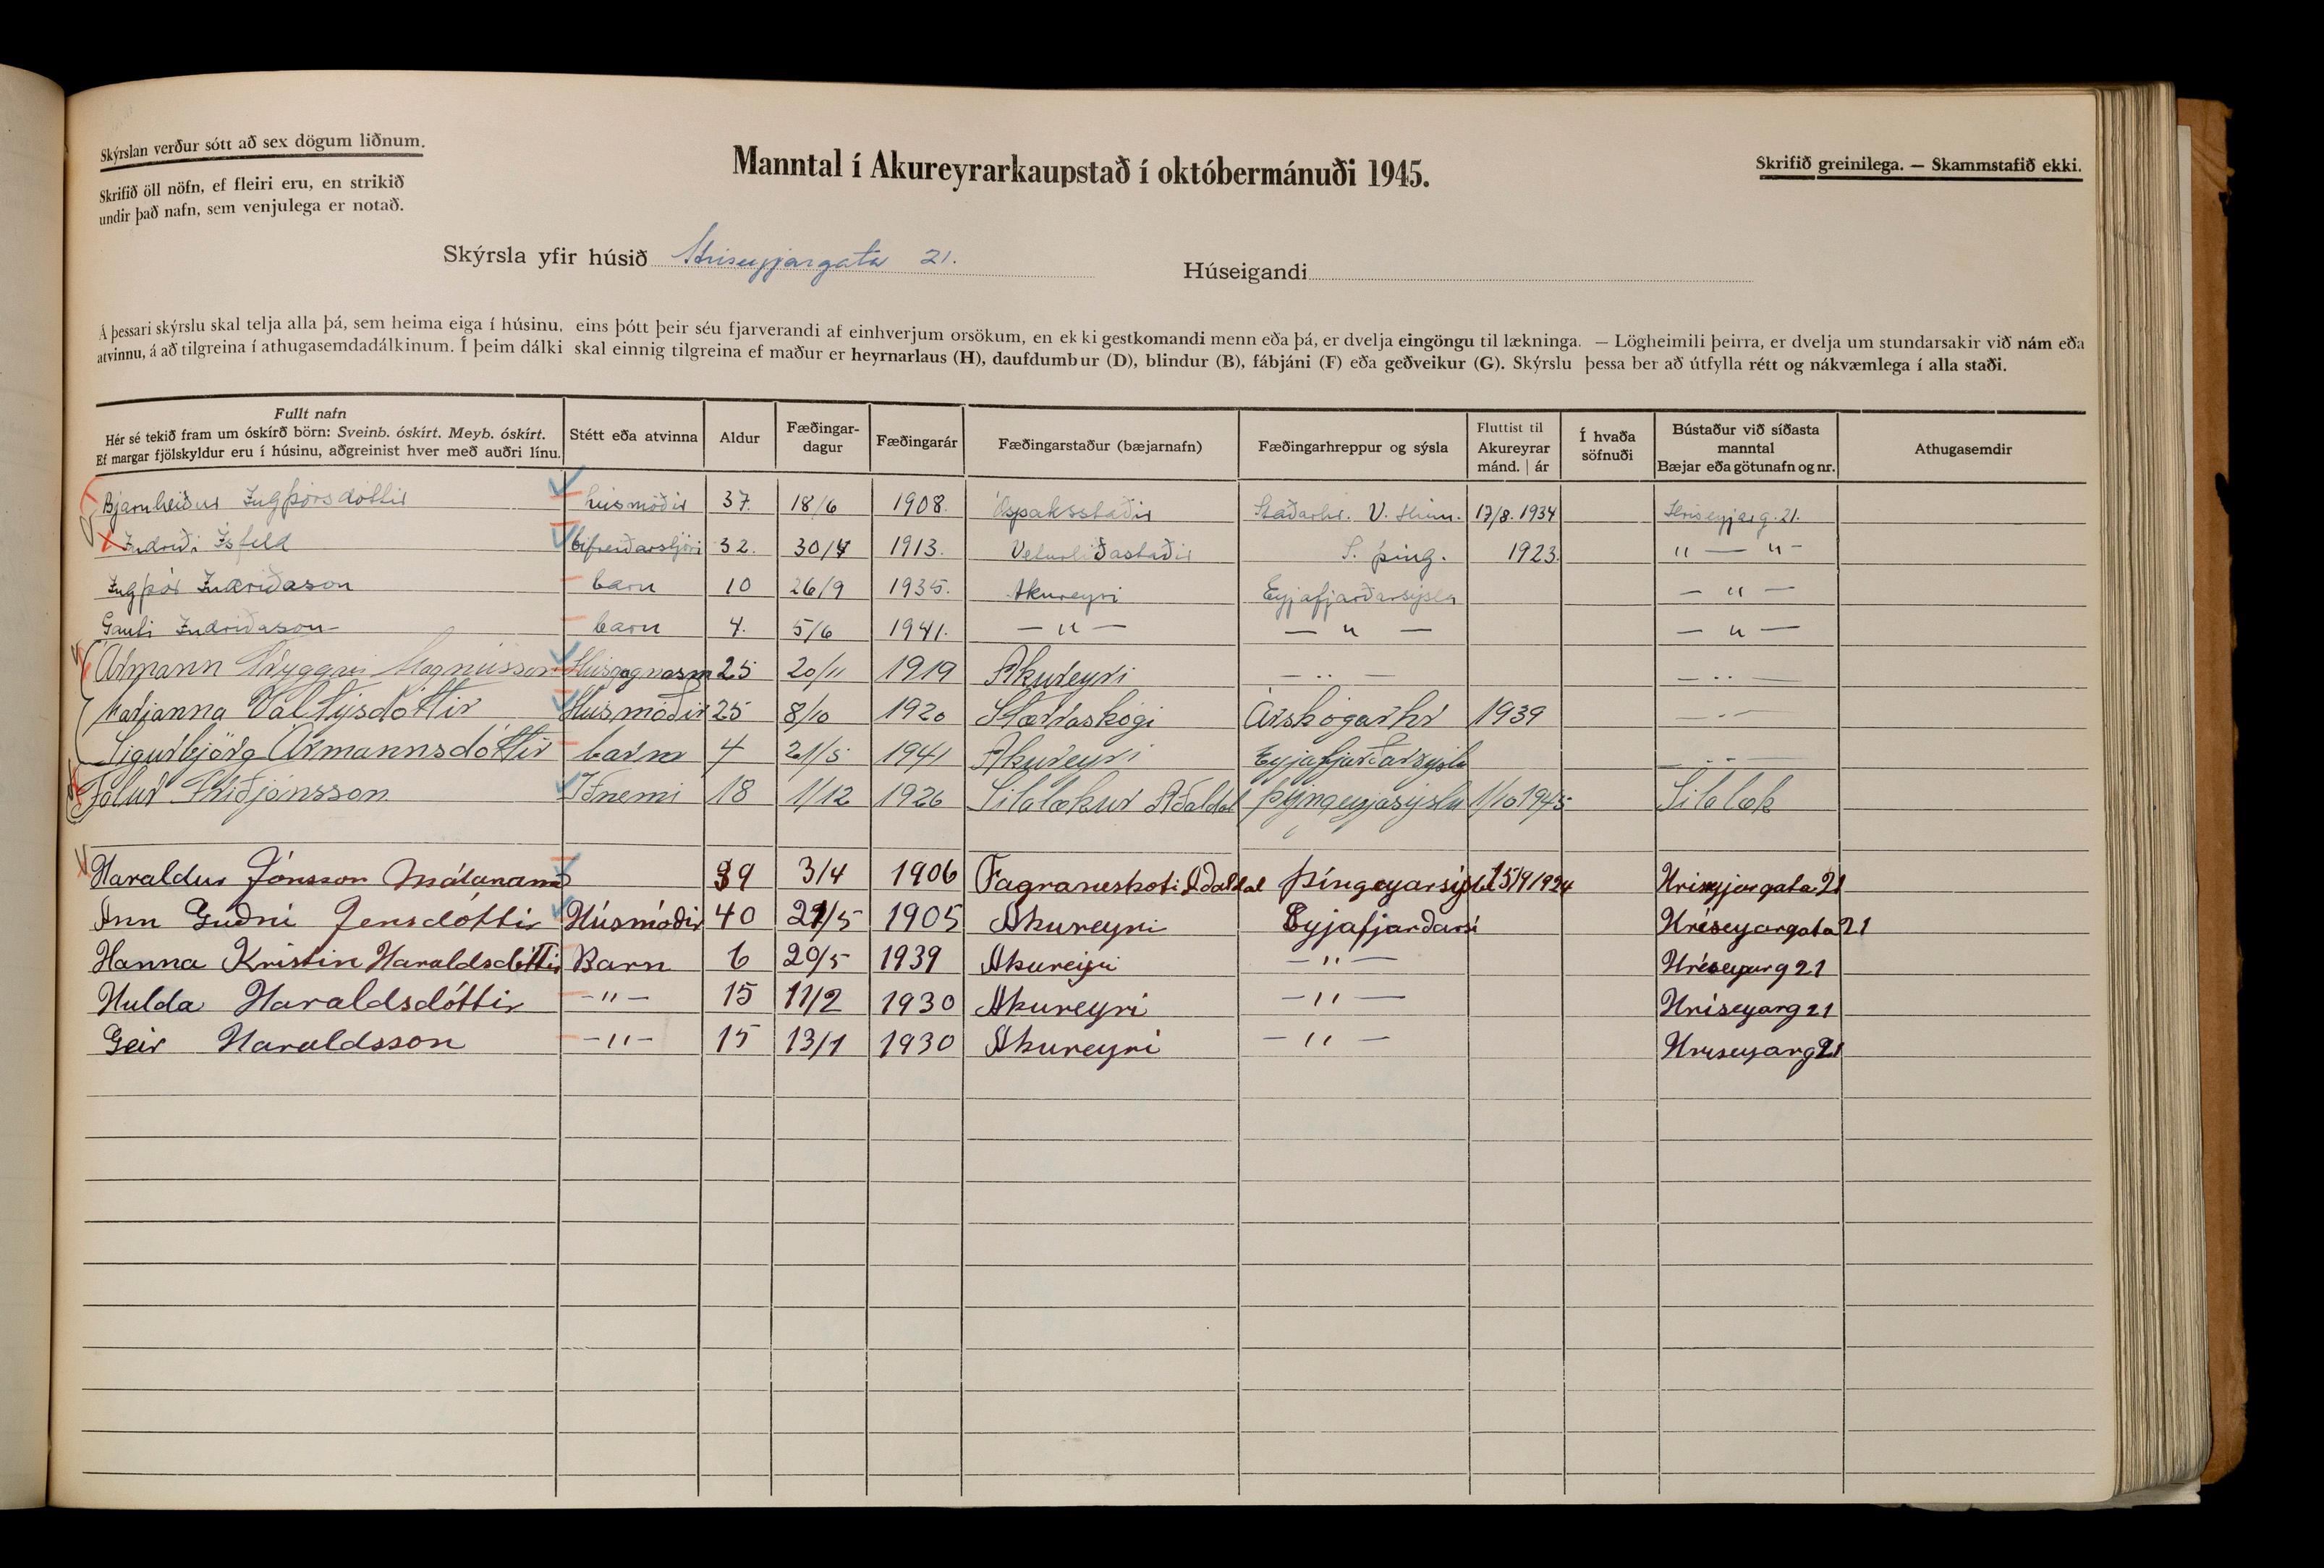 Skýrslan verður sótt að sex dögum liðnum.
Skrifið öll nöfn, ef fleiri eru, en strikið
undir það nafn, sem venjulega er notað.
Manntal í Akureyrarkaupstað í októbermánuði 1945.
Skrifið greinilega. — Skammstafið ekki.
Skýrsla yfir húsið Hríseyjargata 21.
Húseigandi
Á þessari skýrslu skal telja alla þá, sem heima eiga í húsinu, eins þótt þeir séu fjarverandi af einhverjum orsökum, en ekki gestkomandi menn eða þá, er dvelja eingöngu til lækninga. — Lögheimili þeirra, er dvelja um stundarsakir við nám eða
atvinnu, á að tilgreina í athugasemdadálkinum. Í þeim dálki skal einnig tilgreina ef maður er heyrnarlaus (H), daufdumbur (D), blindur (B), fábjáni (F) eða geðveikur (G). Skýrslu þessa ber að útfylla rétt og nákvæmlega í alla staði.
Fullt nafn
Hér sé tekið fram um óskírð börn: Sveinb. óskírt. Meyb. óskírt.
Ef margar fjölskyldur eru í húsinu, aðgreinist hver með auðri línu.
Stétt eða atvinna
Aldur
Fæðingar-
dagur
Fæðingarár
Fæðingarstaður (bæjarnafn)
Fæðingarhreppur og sýsla
Fluttist til
Akureyrar
mánd. | ár
Í hvaða
söfnuði
Bústaður við síðasta
manntal
Bæjar eða götunafn og nr.
Athugasemdir
Bjarnheiður Ingþórsdóttir húsmóðir 37. 18/6 1908. Óspaksstaðir Staðarhr. V. Hún. 17/8. 1934 Hríseyjarg. 21.
Indriði Ísfeld bifreiðarstjóri 32. 30/4 1913. Veturliðastaðir S. þing. 1923. " — " -
Ingþór Indriðason barn 10 26/9 1935. Akureyri Eyjafjarðarsýsla — " —
Gauti Indriðason barn 4. 5/6 1941. — " — — " — — " —
Ármann Tryggvi Magnússon Húsgagnasm 25 20/11 1919 Akureyri — .. — — .. —
Marjanna Valtýsdóttir Húsmóðir 25 8/10 1920 Stærraskógi Árskógarhr 1939 — .. —
Sigurbjörg Ármannsdóttir barn 4 21/5 1941 Akureyri Eyjafjarðarsýsla — .. —
Friðjónsson Iðnemi 18 1/12 1926 Sílalækur Aðaldal þingeyjasýslu 1/10 1945 Sílalæk
Haraldur Jónsson Málaram 39 3/4 1906 Fagraneskoti Aðaldal þingeyarsýsla 15/9 1924 Hríseyjargata 21
Ann Guðni Jensdóttir Húsmóðir 40 21/5 1905 Akureyri Eyjafjarðarsí Hríseyargata 21
Hanna Kristin Haraldsdóttir Barn 6 29/5 1939 Akureyri — " — Hríseyarg 21
Hulda Haraldsdóttir - " - 15 11/2 1930 Akureyri — " — Hríseyarg 21
Geir Haraldsson - " - 15 13/1 1930 Akureyri — " — Hríseyarg 21